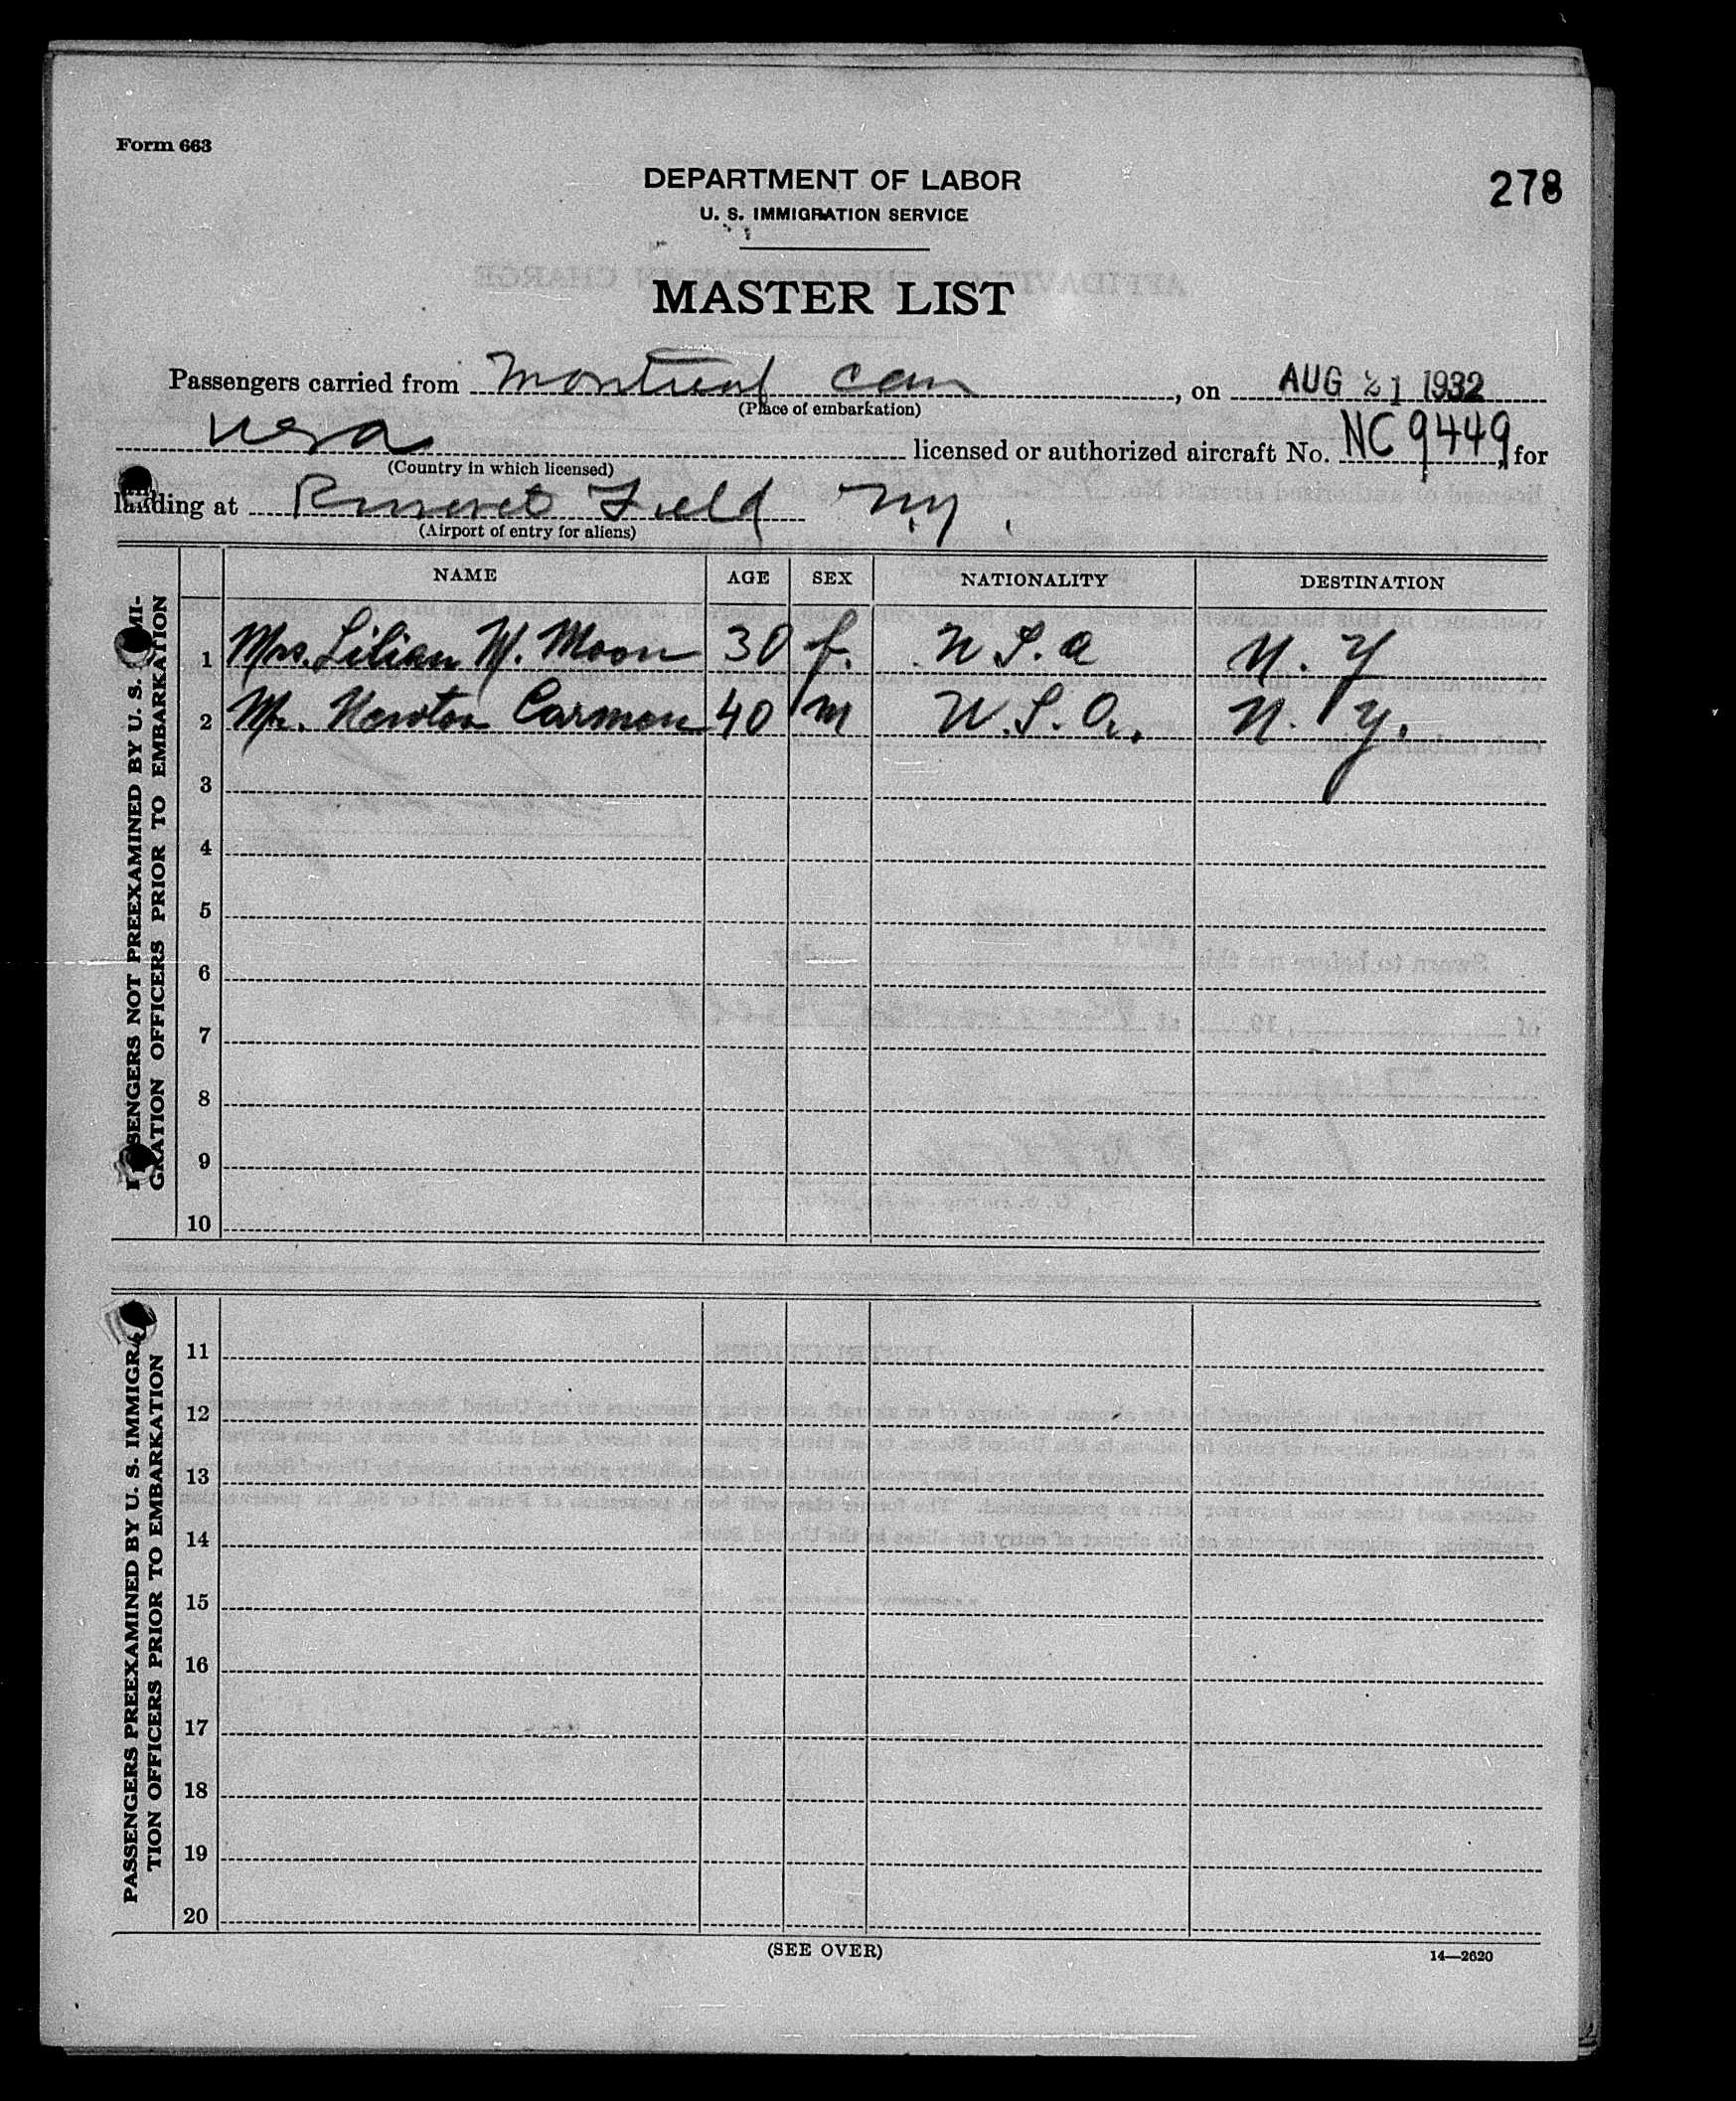 Form 663
DEPARTMENT OF LABOR
U. S. IMMIGRATION SERVICE
278
MASTER LIST
Passengers carried from Montreal Can, on AUG 21 1932
(Place of embarkation)
USA licensed or authorized aircraft No. NC 9449, for
(Country in which licensed)
landing at Field N.Y.
(Airport of entry for aliens)
NAME AGE SEX NATIONALITY DESTINATION
1 Mrs. Lilian M. Moon 30 f. U.S.A N.Y
2 Mr. Newton Carmon 40 m U.S.A. N.Y.
3
4
5
6
7
8
9
10
SENGERS NOT PREEXAMINED BY U. S. MI-
GRATION OFFICERS PRIOR TO EMBARKATION
11
12
13
14
15
16
17
18
19
20
PASSENGERS PREEXAMINED BY U. S. IMMIGRA
TION OFFICERS PRIOR TO EMBARKATION
(SEE OVER)
14—2620